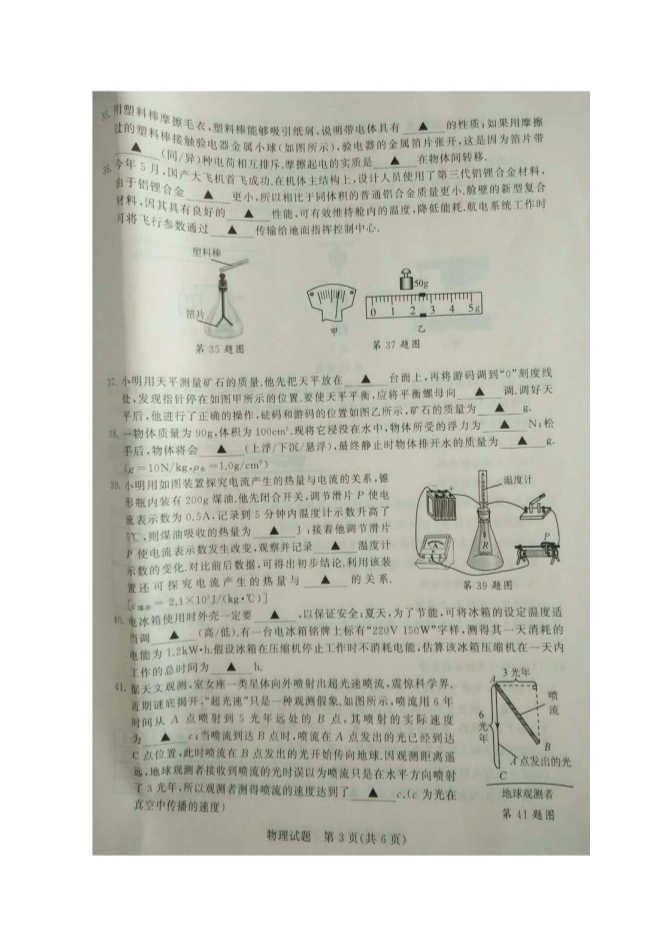 35. 用塑料棒摩擦毛衣,塑料棒能够吸引纸屑,说明带电体具有 ▲ 的性质;如果用摩擦
过的塑料棒接触验电器金属小球(如图所示),验电器的金属箔片张开,这是因为箔片带
▲ (同/异)种电荷相互排斥.摩擦起电的实质是 ▲ 在物体间转移.
36. 今年5月,国产大飞机首飞成功.在机体主结构上,设计人员使用了第三代铝锂合金材料,
由于铝锂合金 ▲ 更小,所以相比于同体积的普通铝合金质量更小.舱壁的新型复合
材料,因其具有良好的 ▲ 性能,可有效维持舱内的温度,降低能耗.航电系统工作时
可将飞行参数通过 ▲ 传输给地面指挥控制中心.
塑料棒
箔片
第 35 题图
甲
50g
0 1 2 3 4 5g
乙
第 37 题图
37. 小明用天平测量矿石的质量.他先把天平放在 ▲ 台面上,再将游码调到“0”刻度线
处,发现指针停在如图甲所示的位置.要使天平平衡,应将平衡螺母向 ▲ 调.调好天
平后,他进行了正确的操作,砝码和游码的位置如图乙所示,矿石的质量为 ▲ g.
38. 一物体质量为90g,体积为100cm³.现将它浸没在水中,物体所受的浮力为 ▲ N;松
手后,物体将会 ▲ (上浮/下沉/悬浮),最终静止时物体排开水的质量为 ▲ g.
(g=10N/kg,ρ水=1.0g/cm³)
39. 小明用如图装置探究电流产生的热量与电流的关系,锥
形瓶内装有200g煤油.他先闭合开关,调节滑片P使电
流表示数为0.5A,记录到5分钟内温度计示数升高了
5℃,则煤油吸收的热量为 ▲ J;接着他调节滑片
P使电流表示数发生改变,观察并记录 ▲ 温度计
示数的变化.对比前后数据,可得出初步结论.利用该装
置还可探究电流产生的热量与 ▲ 的关系.
[c煤油=2.1×10³J/(kg·℃)]
温度计
A
R
P
第 39 题图
40. 电冰箱使用时外壳一定要 ▲ ,以保证安全;夏天,为了节能,可将冰箱的设定温度适
当调 ▲ (高/低).有一台电冰箱铭牌上标有“220V 150W”字样,测得其一天消耗的
电能为1.2kW·h.假设冰箱在压缩机停止工作时不消耗电能,估算该冰箱压缩机在一天内
工作的总时间为 ▲ h.
41. 据天文观测,室女座一类星体向外喷射出超光速喷流,震惊科学界.
近期谜底揭开,“超光速”只是一种观测假象.如图所示,喷流用6年
时间从A点喷射到5光年远处的B点,其喷射的实际速度
为 ▲ c;当喷流到达B点时,喷流在A点发出的光已经到达
C点位置,此时喷流在B点发出的光开始传向地球.因观测距离遥
远,地球观测者接收到喷流的光时误以为喷流只是在水平方向喷射
了3光年,所以观测者测得喷流的速度达到了 ▲ c.(c为光在
真空中传播的速度)
3光年
A
喷
流
6
光
年
B
A点发出的光
C
地球观测者
第 41 题图
物理试题 第3页(共6页)